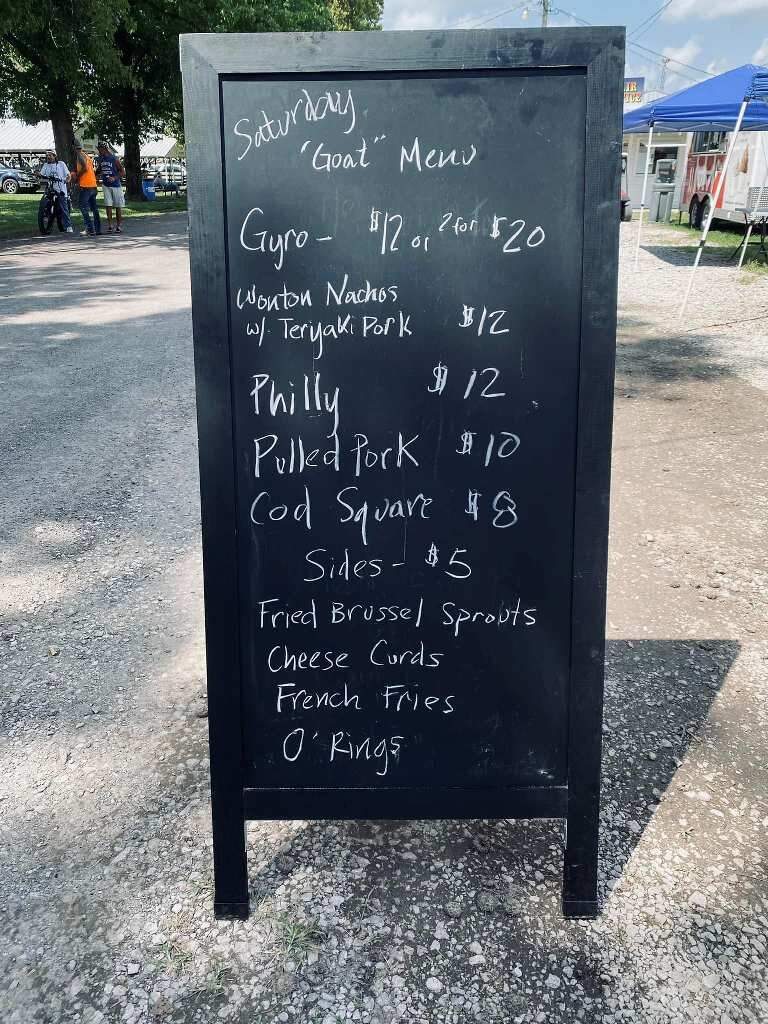 Saturday
"Goat" Menu
Gyro - $12 or 2 for $20
Wonton Nachos
w/ Teryaki Pork $12
Philly $12
Pulled Pork $10
Cod Square $8
Sides - $5
Fried Brussel Sprouts
Cheese Curds
French Fries
O'Rings